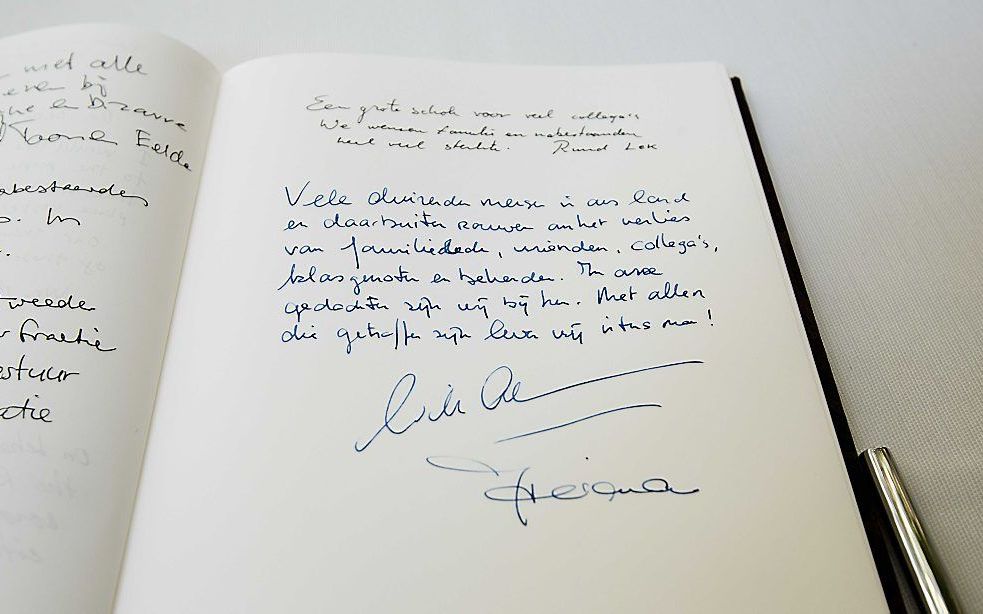 met alle
bij
en Bizarre
Eelde
nabestaanden
Tweede
fractie
bestuur
Een grote schok voor veel collega's
We wensen familie en nabestaanden
heel veel sterkte. Ruud Lok
Vele duizenden mensen in ons land
en daarbuiten rouwen om het verlies
van familieleden, vrienden, collega's,
klasgenoten en bekenden. In onze
gedachten zijn wij bij hen. Met allen
die getroffen zijn leven wij intens mee!